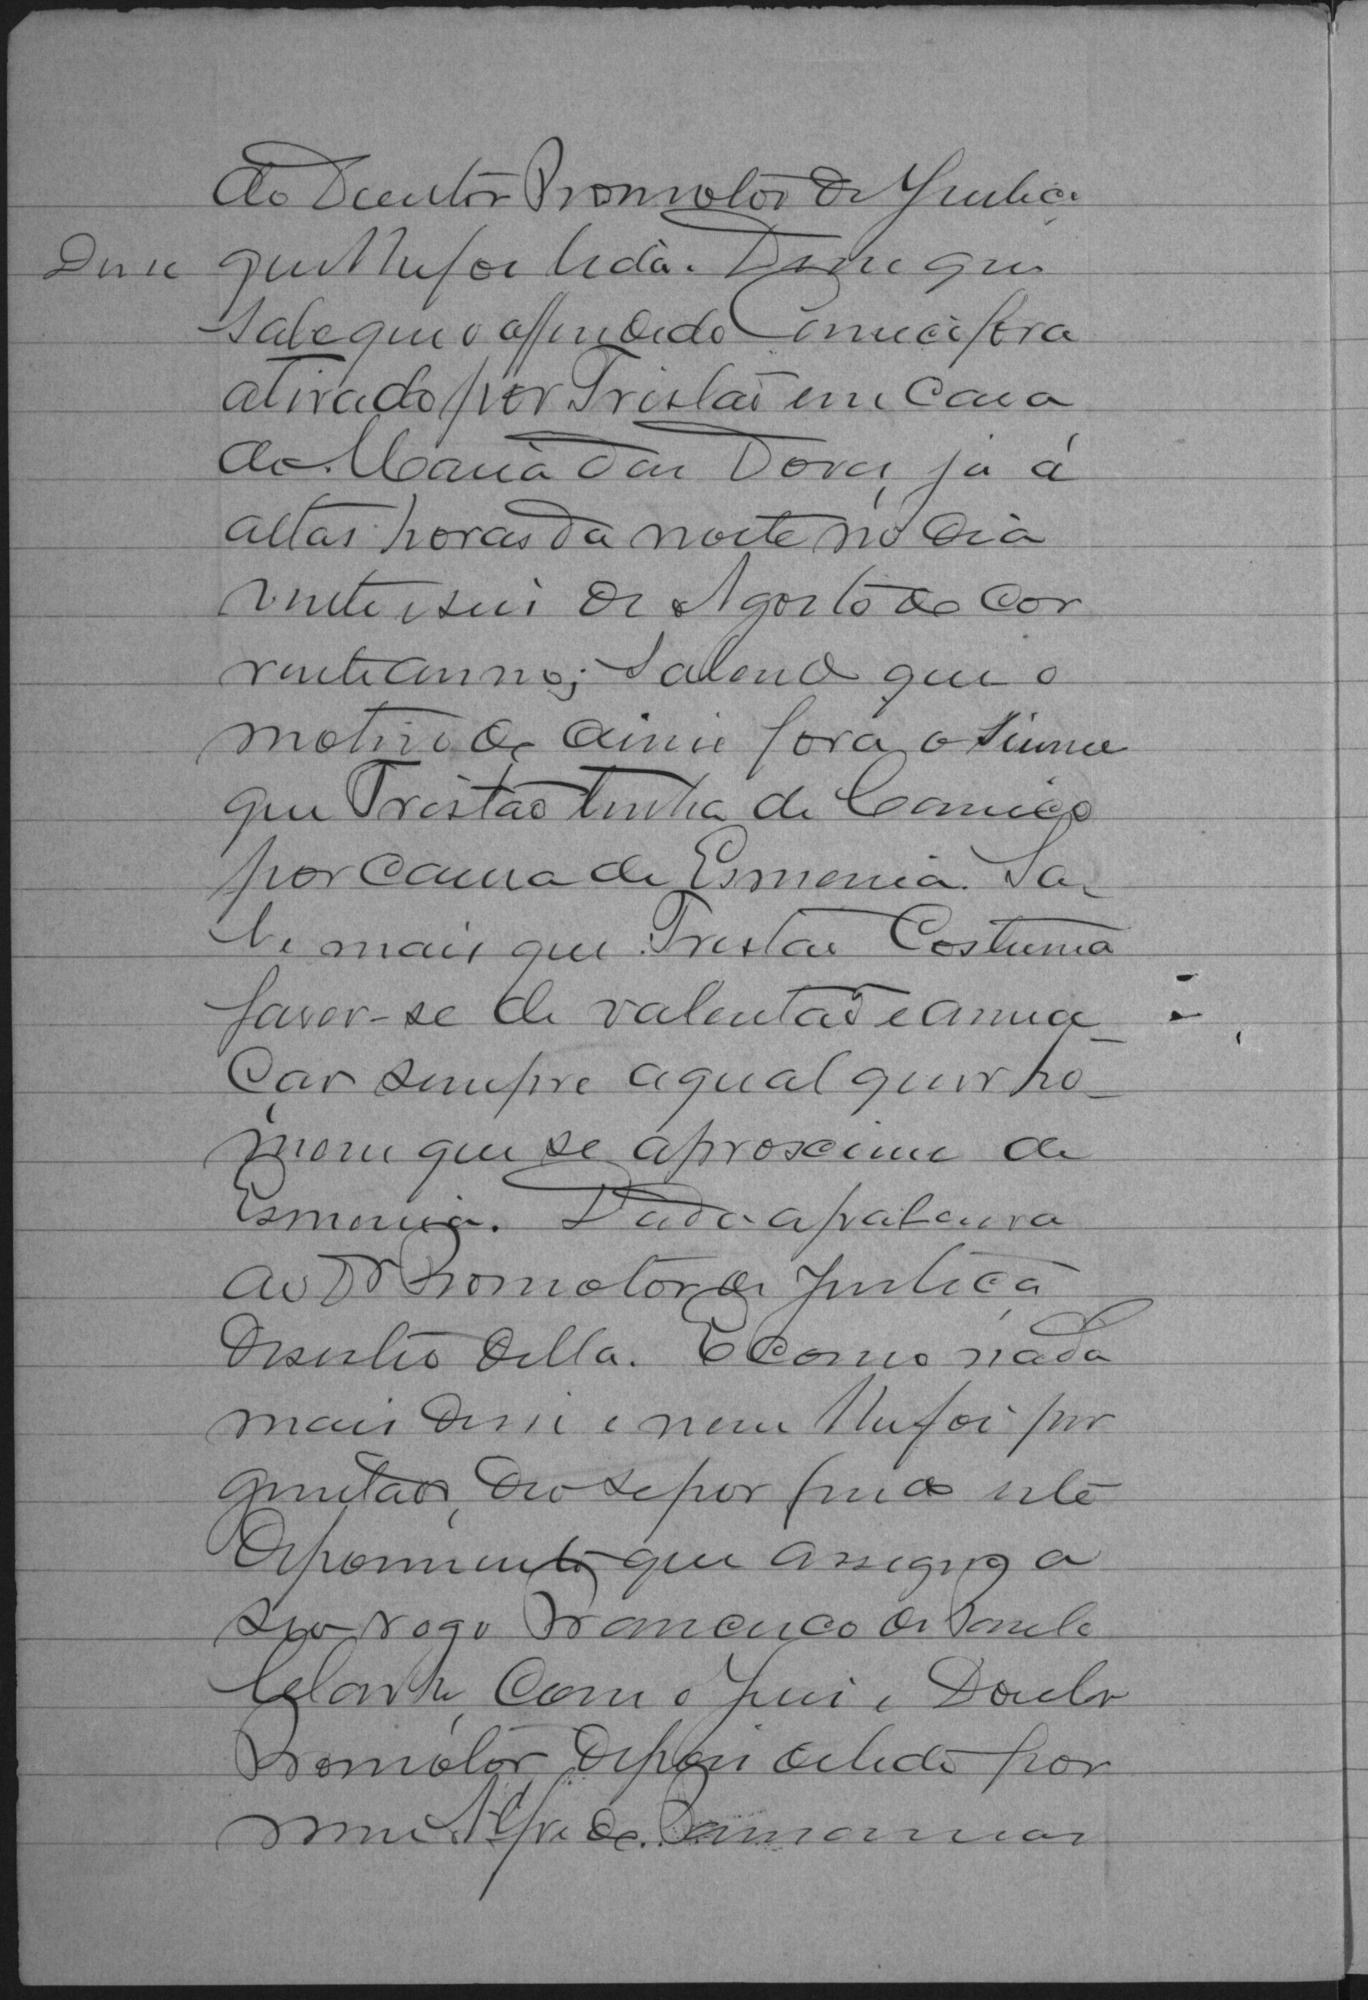 do Doutor Promotor de Justiça
Disse que lhe foi lida. Disse que
sabe que o offendido Camiço fora
atirado por Tristão em casa
de Maria das Dores, ja á
altas horas da noite no dia
vinte e seis de Agosto do cor
rente anno; sabendo que o
motivo do crime fora o siume
que Tristão tinha de Camiço
por causa de Esmenia. Sa-
be mais que Tristão costuma
faser-se de valentão e amea-
çar sempre a qual quer ho-
mem que se aproxime de
Esmenia. Dada a palavra
ao Dr Promotor de Justiça
desistio della. E como nada
mais disse e nem lhe foi per
guntado, deo se por findo este
depoimento que assigna a
seo rogo Francisco de Paula
com o Juis e Doutor
Promotor depois de lido por
mim Alfredo